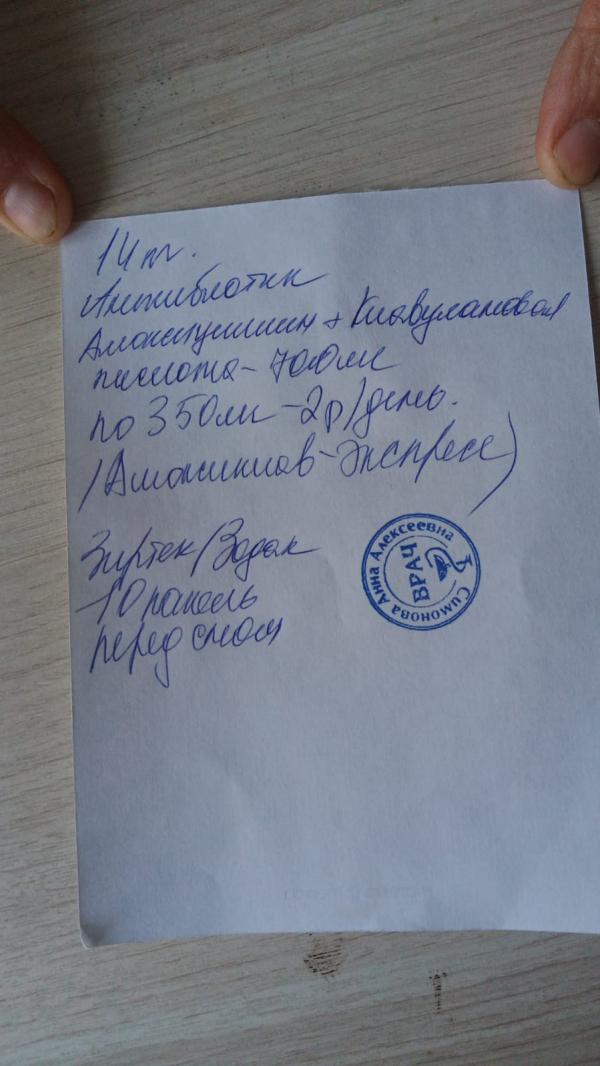 14 кг.
Антибиотик
Амоксициллин + Клавулановая
кислота - 700мг
по 350мг - 2р/день.
(Амоксиклав - Экспресс)
Зиртек/Зодак
10 капель
перед сном
Симонова Анна Алексеевна
ВРАЧ